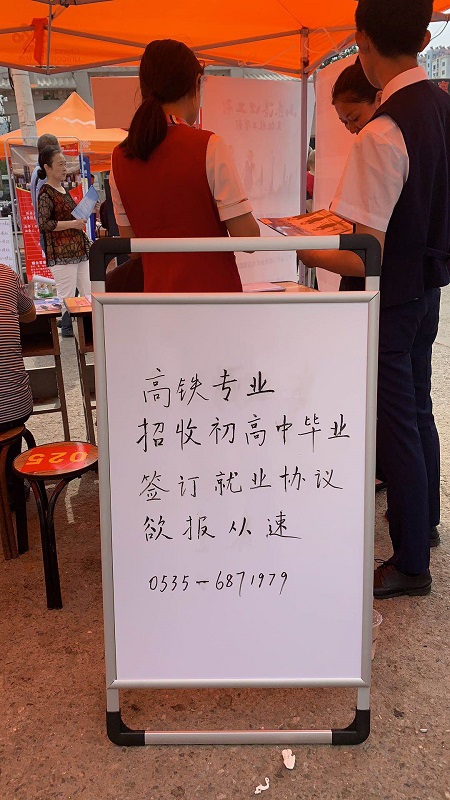 高铁专业
招收初高中毕业
签订就业协议
欲报从速
0535-6871979
025